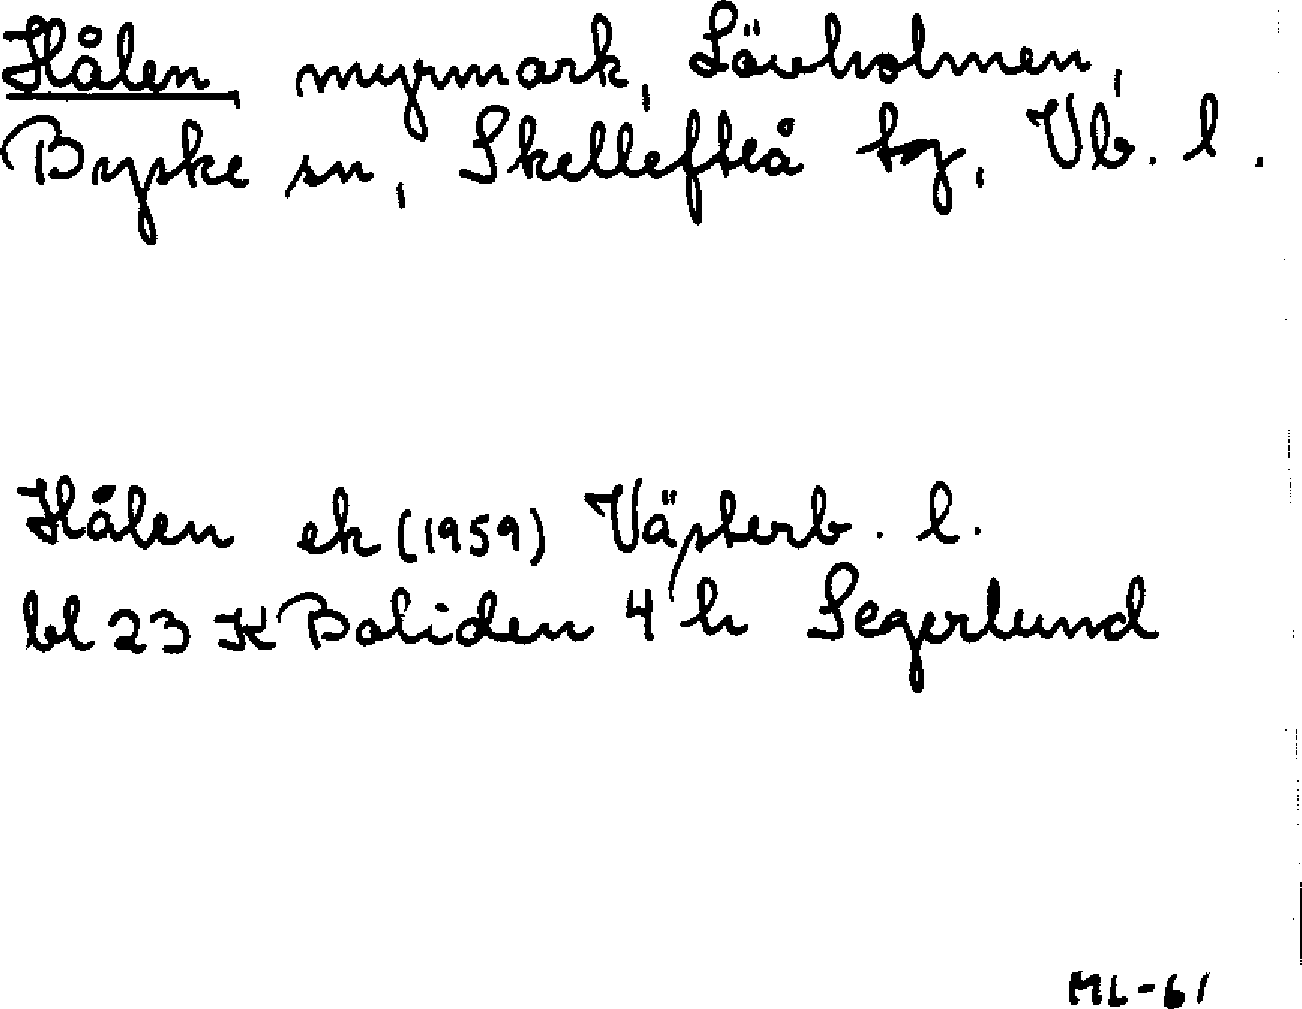 Hålen myrmark, Lövholmen,
Byske sn, Skellefteå tg, Vb. l.
Hålen ek (1959) Västerb. l.
bl 23 K Boliden 4 h Segerlund
ML-61